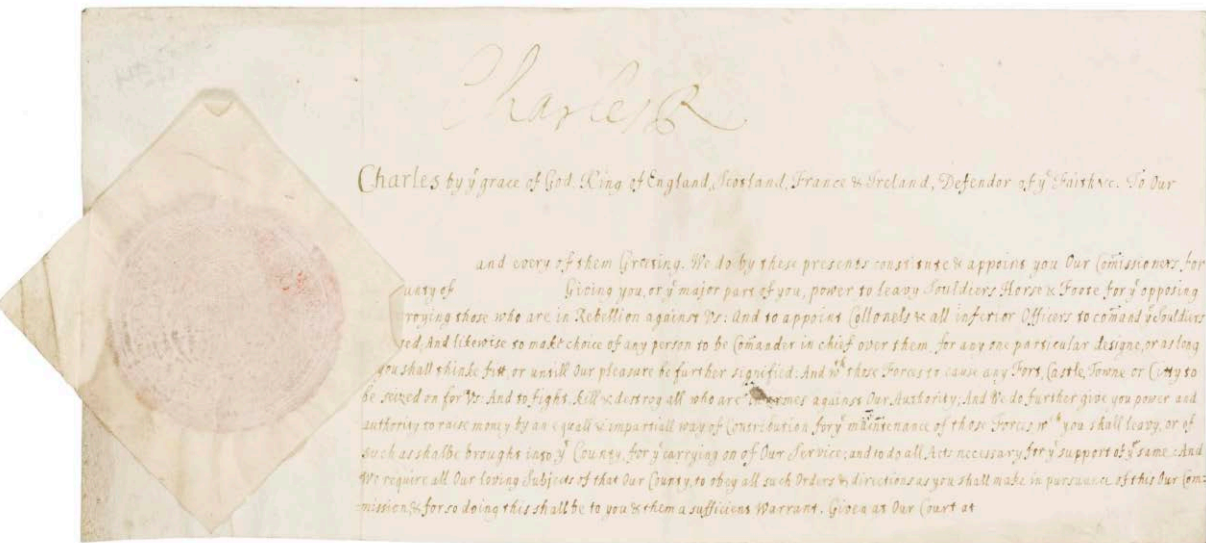 Charles R
Charles by yᵉ grace of God, King of England, Scotland, France & Ireland, Defendor of yᵉ Faith &c. To Our
and every of them Greeting. We do by these presents constitute & appoint you Our Com̃issioners for
unty of Giving you, or yᵉ major part of you, power to leavy Souldiers Horse & Foote for yᵉ opposing
troying those who are in Rebellion against Us: And to appoint Collonels & all inferior Officers to com̃and yᵉ Souldiers
And likewise to make choice of any person to be Com̃ander in chief over them, for any one particular designe, or as long
you shall thinke fitt, or untill Our pleasure be further signified: And wᵗʰ those Forces to cause any Fort, Castle, Towne or Citty to
be seized on for Us: And to fight, kill & destroy all who are in armes against Our Authority; And We do further give you power and
authority to raise money by an equall & impartiall way of Contribution for yᵉ maintenance of those Forces wᶜʰ you shall leavy, or of
such as shalbe brought into yᵗ County, for yᵉ carrying on of Our Service; and to do all Acts necessary for yᵉ support of yᵉ same: And
We require all Our loving Subjects of that Our County, to obey all such Orders & directions as you shall make in pursuance of this Our Com=
=mission, & for so doing this shall be to you & them a sufficient Warrant. Given at Our Court at